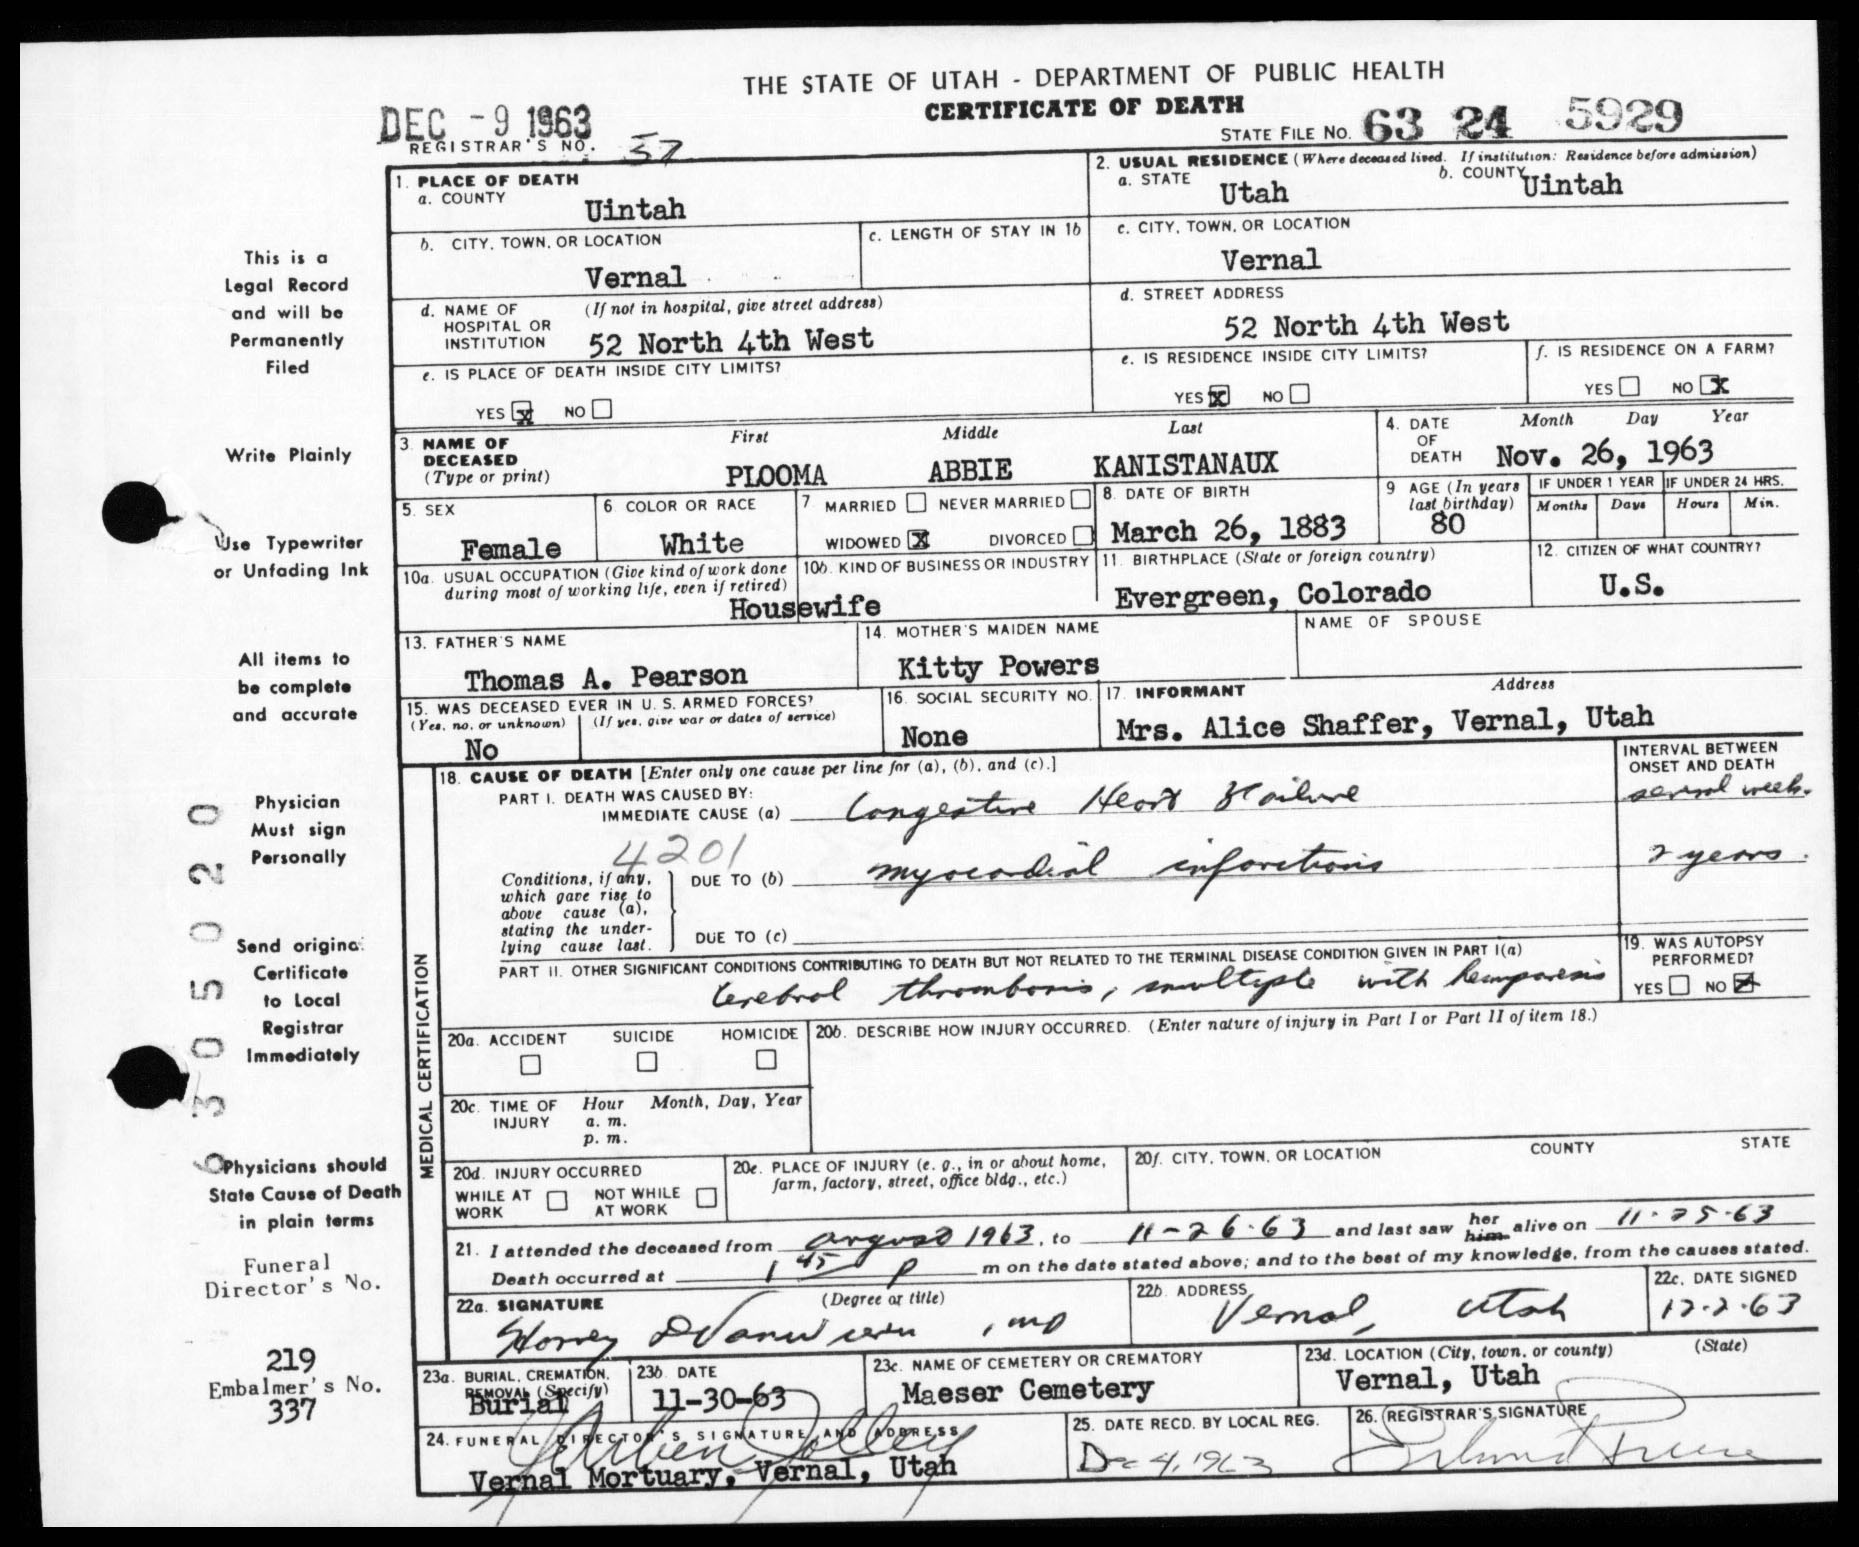 THE STATE OF UTAH - DEPARTMENT OF PUBLIC HEALTH
CERTIFICATE OF DEATH
DEC -9 1963
REGISTRAR'S NO. 57
STATE FILE NO. 63 24 5929
1. PLACE OF DEATH
a. COUNTY
Uintah
2. USUAL RESIDENCE (Where deceased lived. If institution: Residence before admission)
a. STATE Utah
b. COUNTY Uintah
b. CITY, TOWN, OR LOCATION
Vernal
c. LENGTH OF STAY IN 1b
c. CITY, TOWN, OR LOCATION
Vernal
d. NAME OF HOSPITAL OR INSTITUTION
(If not in hospital, give street address)
52 North 4th West
d. STREET ADDRESS
52 North 4th West
e. IS PLACE OF DEATH INSIDE CITY LIMITS?
YES x NO
e. IS RESIDENCE INSIDE CITY LIMITS?
YES x NO
f. IS RESIDENCE ON A FARM?
YES NO x
3. NAME OF DECEASED
(Type or print)
First Middle Last
PLOOMA ABBIE KANISTANAUX
4. DATE OF DEATH
Month Day Year
Nov. 26, 1963
5. SEX
Female
6. COLOR OR RACE
White
7. MARRIED NEVER MARRIED
WIDOWED x DIVORCED
8. DATE OF BIRTH
March 26, 1883
9 AGE (In years last birthday)
80
IF UNDER 1 YEAR
Months Days
IF UNDER 24 HRS.
Hours Min.
10a. USUAL OCCUPATION (Give kind of work done during most of working life, even if retired)
Housewife
10b. KIND OF BUSINESS OR INDUSTRY
11. BIRTHPLACE (State or foreign country)
Evergreen, Colorado
12. CITIZEN OF WHAT COUNTRY?
U.S.
13. FATHER'S NAME
Thomas A. Pearson
14. MOTHER'S MAIDEN NAME
Kitty Powers
NAME OF SPOUSE
15. WAS DECEASED EVER IN U. S. ARMED FORCES?
(Yes, no, or unknown) (If yes, give war or dates of service)
No
16. SOCIAL SECURITY NO.
None
17. INFORMANT Address
Mrs. Alice Shaffer, Vernal, Utah
MEDICAL CERTIFICATION
18. CAUSE OF DEATH [Enter only one cause per line for (a), (b), and (c).]
INTERVAL BETWEEN ONSET AND DEATH
PART I. DEATH WAS CAUSED BY:
IMMEDIATE CAUSE (a) Congestive Heart Failure several weeks
4201
Conditions, if any, which gave rise to above cause (a), stating the underlying cause last.
DUE TO (b) myocardial infarctions 2 years.
DUE TO (c)
PART II. OTHER SIGNIFICANT CONDITIONS CONTRIBUTING TO DEATH BUT NOT RELATED TO THE TERMINAL DISEASE CONDITION GIVEN IN PART I(a)
Cerebral thrombosis, multiple with hemiparesis
19. WAS AUTOPSY PERFORMED?
YES NO x
20a. ACCIDENT SUICIDE HOMICIDE
20b. DESCRIBE HOW INJURY OCCURRED. (Enter nature of injury in Part I or Part II of item 18.)
20c. TIME OF INJURY
Hour Month, Day, Year
a. m.
p. m.
20d. INJURY OCCURRED
WHILE AT WORK NOT WHILE AT WORK
20e. PLACE OF INJURY (e. g., in or about home, farm, factory, street, office bldg., etc.)
20f. CITY, TOWN, OR LOCATION COUNTY STATE
21. I attended the deceased from august 1963, to 11-26-63 and last saw her him alive on 11-25-63
Death occurred at 1 45 P m on the date stated above; and to the best of my knowledge, from the causes stated.
22a. SIGNATURE (Degree or title)
, MD
22b. ADDRESS
Vernal, Utah
22c. DATE SIGNED
12-2-63
23a. BURIAL, CREMATION, REMOVAL (Specify)
Burial
23b. DATE
11-30-63
23c. NAME OF CEMETERY OR CREMATORY
Maeser Cemetery
23d. LOCATION (City, town, or county) (State)
Vernal, Utah
24. FUNERAL DIRECTOR'S SIGNATURE AND ADDRESS
Vernal Mortuary, Vernal, Utah
25. DATE RECD. BY LOCAL REG.
Dec 4, 1963
26. REGISTRAR'S SIGNATURE
This is a
Legal Record
and will be
Permanently
Filed
Write Plainly
Use Typewriter
or Unfading Ink
All items to
be complete
and accurate
Physician
Must sign
Personally
Send original
Certificate
to Local
Registrar
Immediately
Physicians should
State Cause of Death
in plain terms
Funeral
Director's No.
219
Embalmer's No.
337
63050020